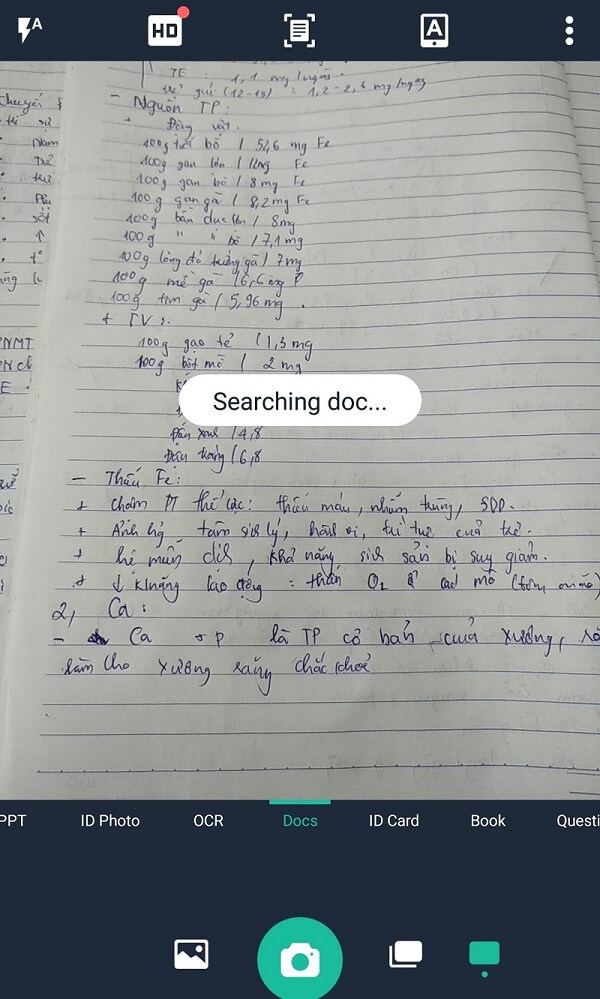 A
HD
A
TE : 1,1 mg/ngày.
(12-19) : 1,2-2,8 mg/ngày
- Nguồn TP:
+ Động vật.
100g tiết bò / 52,6 mg Fe
100g gan lợn / 12mg Fe
100g gan bò / 8mg Fe
100g gan gà / 8,2mg Fe
100g bầu dục lợn / 8mg
100g " " bò / 7,1mg
100g lòng đỏ trứng gà / 7mg
100g mề gà / 6,6mg
100g tim gà / 5,96mg.
+ TV:
100g gạo tẻ / 1,3mg
100g bột mỳ / 2mg
Searching doc...
Đậu xanh / 4,8
Đậu trắng / 6,8
- Thiếu Fe:
+ Chậm PT thể lực: thiếu máu, nhiễm trùng, SDD.
+ Ảnh hg tâm sinh lý, hành vi, trí tuệ của trẻ.
+ hệ miễn dịch, khả năng sinh sản bị suy giảm.
+ ↓ k/năng lao động : thiếu O₂ ở các mô
2, Ca:
- Ca P là TP cơ bản của xương,
làm cho xương răng chắc khoẻ
chuyể
Nam
Trẻ
sốt
↑
NMT
N ch
E
PPT
ID Photo
OCR
Docs
ID Card
Book
Questi